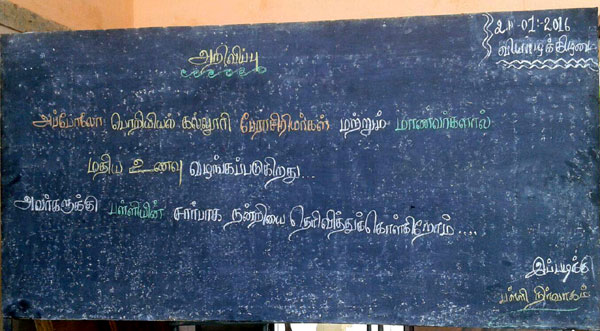 21.01.2016
வியாழக்கிழமை
அறிவிப்பு
அப்போலோ பொறியியல் கல்லூரி பேராசிரியர்கள் மற்றும் மாணவர்களால்
மதிய உணவு வழங்கப்படுகிறது...
அவர்களுக்கு பள்ளியின் சார்பாக நன்றியை தெரிவித்துக்கொள்கிறோம்....
இப்படிக்கு
பள்ளி நிர்வாகம்